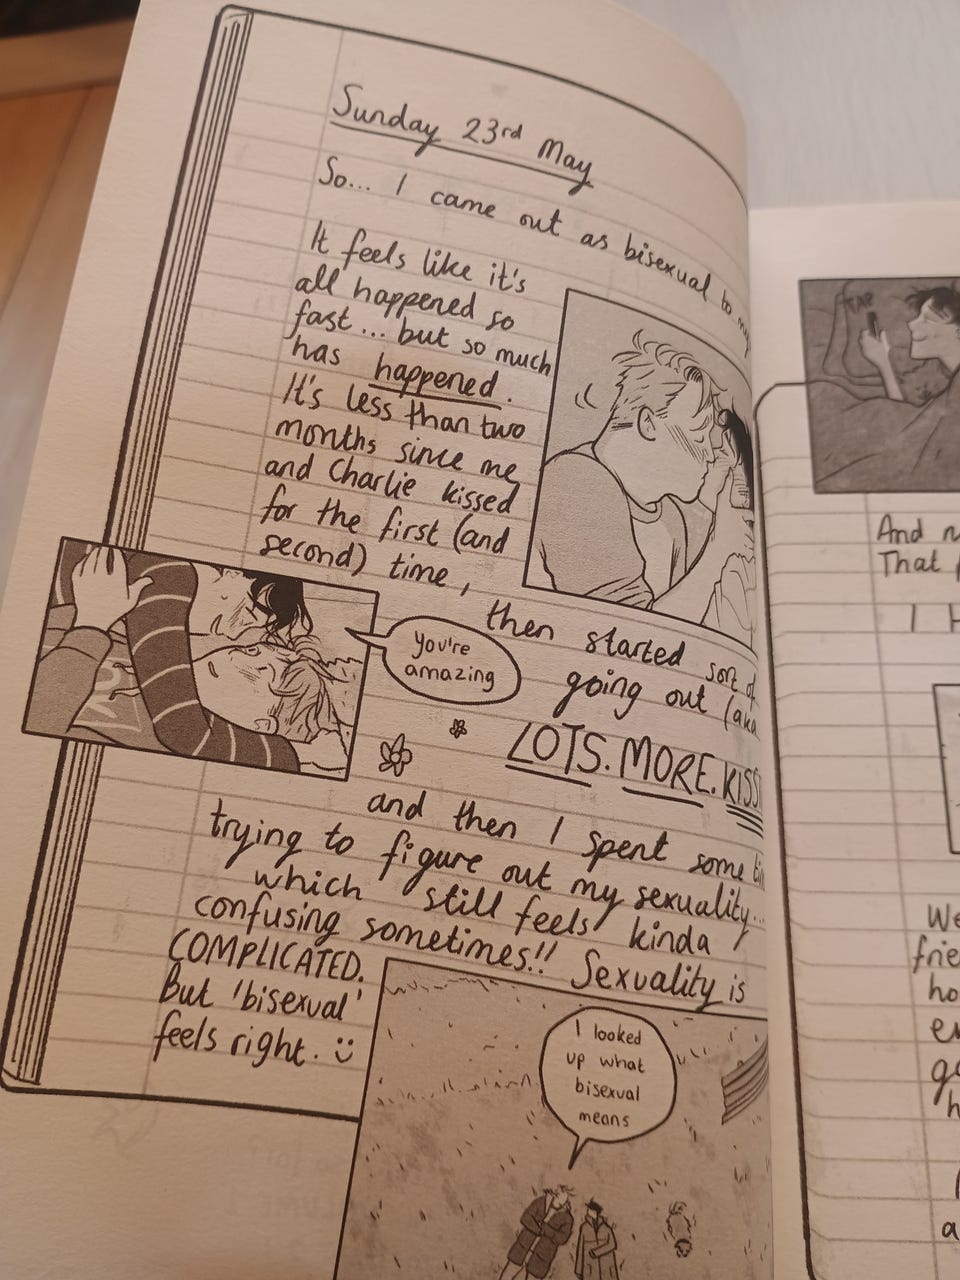 Sunday 23rd May
So... I came out as bisexual to my
It feels like it's
all happened so
fast... but so much
has happened.
It's less than two
months since me
and Charlie kissed
for the first (and
second) time,
then started sort of
going out (aka
LOTS. MORE. KISS
you're
amazing
and then I spent some
trying to figure out my sexuality...
which still feels kinda
confusing sometimes!! Sexuality is
COMPLICATED.
But 'bisexual'
feels right.
I looked
up what
bisexual
means
TAP
And
That
I
We
frie
ho